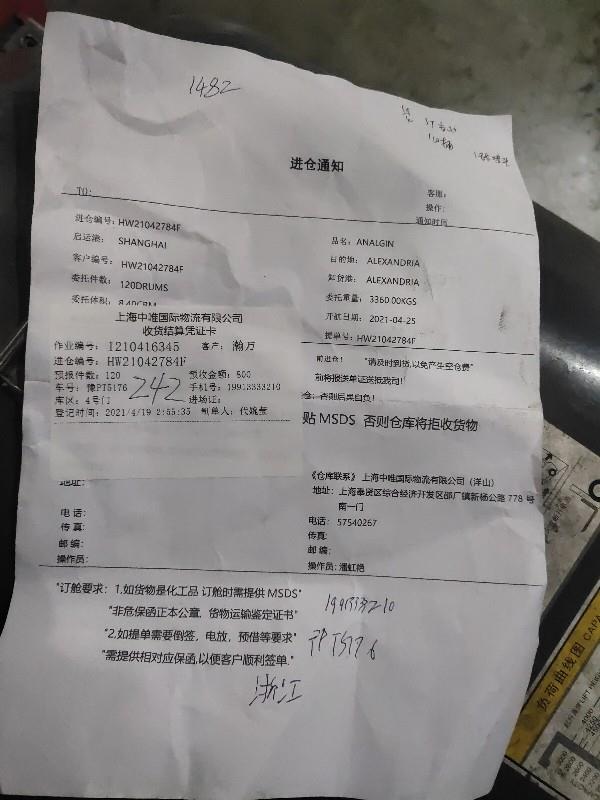 1482
进仓通知
TO:
客服:
操作:
通知时间
进仓编号: HW21042784F
启运港: SHANGHAI
客户编号: HW21042784F
委托件数: 120DRUMS
委托体积: 8.40CBM
品名: ANALGIN
目的地: ALEXANDRIA
卸货港: ALEXANDRIA
委托重量: 3360.00KGS
开航日期: 2021-04-25
提单号: HW21042784F
上海中唯国际物流有限公司
收货结算凭证卡
作业编号: I210416345 客户: 瀚万
进仓编号: HW21042784F
预报件数: 120 预收金额: 500
车号: 豫PT5176 手机号: 19913333210
库区: 4号门 进场证:
登记时间: 2021/4/19 2:55:35 制单人: 代婉莹
242
前进仓! "请及时到货,以免产生空仓费"
前将报送单证送抵我司!
仓: 否则后果自负!
贴 MSDS 否则仓库将拒收货物
地址:
电话:
传真:
邮编:
操作员:
《仓库联系》 上海中唯国际物流有限公司 (洋山)
地址: 上海奉贤区综合经济开发区邵厂镇新杨公路 778 号
南一门
电话: 57540267
传真:
邮编:
操作员: 潘虹艳
"订舱要求: 1.如货物是化工品 订舱时需提供 MSDS"
"非危保函正本公章, 货物运输鉴定证书"
"2.如提单需要倒签, 电放, 预借等要求"
"需提供相对应保函,以便客户顺利签单."
浙江
负荷曲线图 CAPA